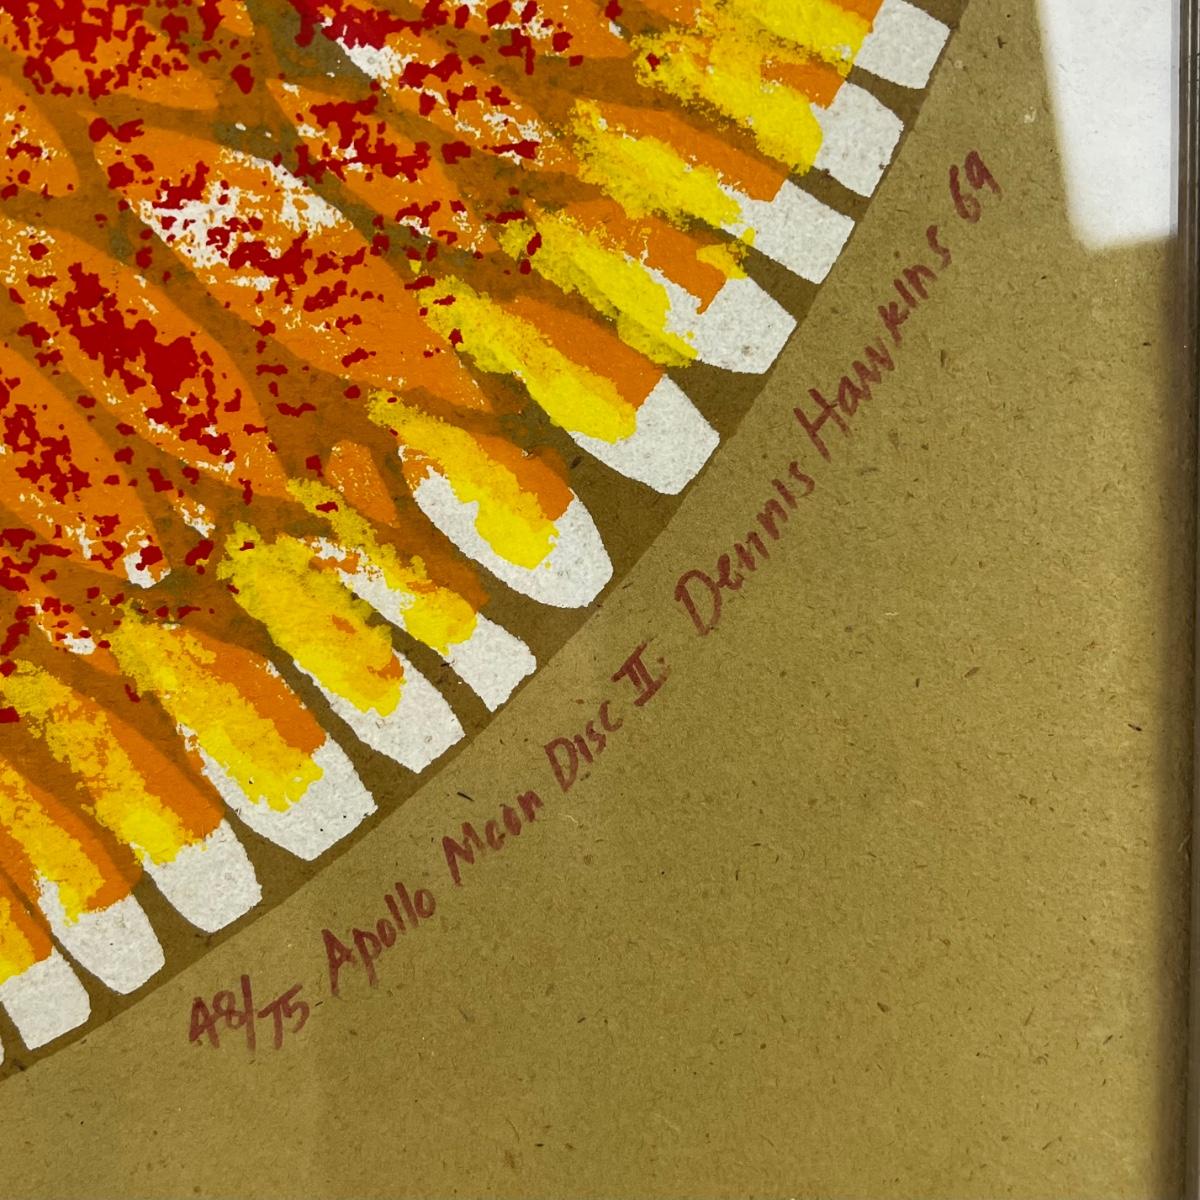 48/75 Apollo Moon Disc II. Dennis Hawkins 69